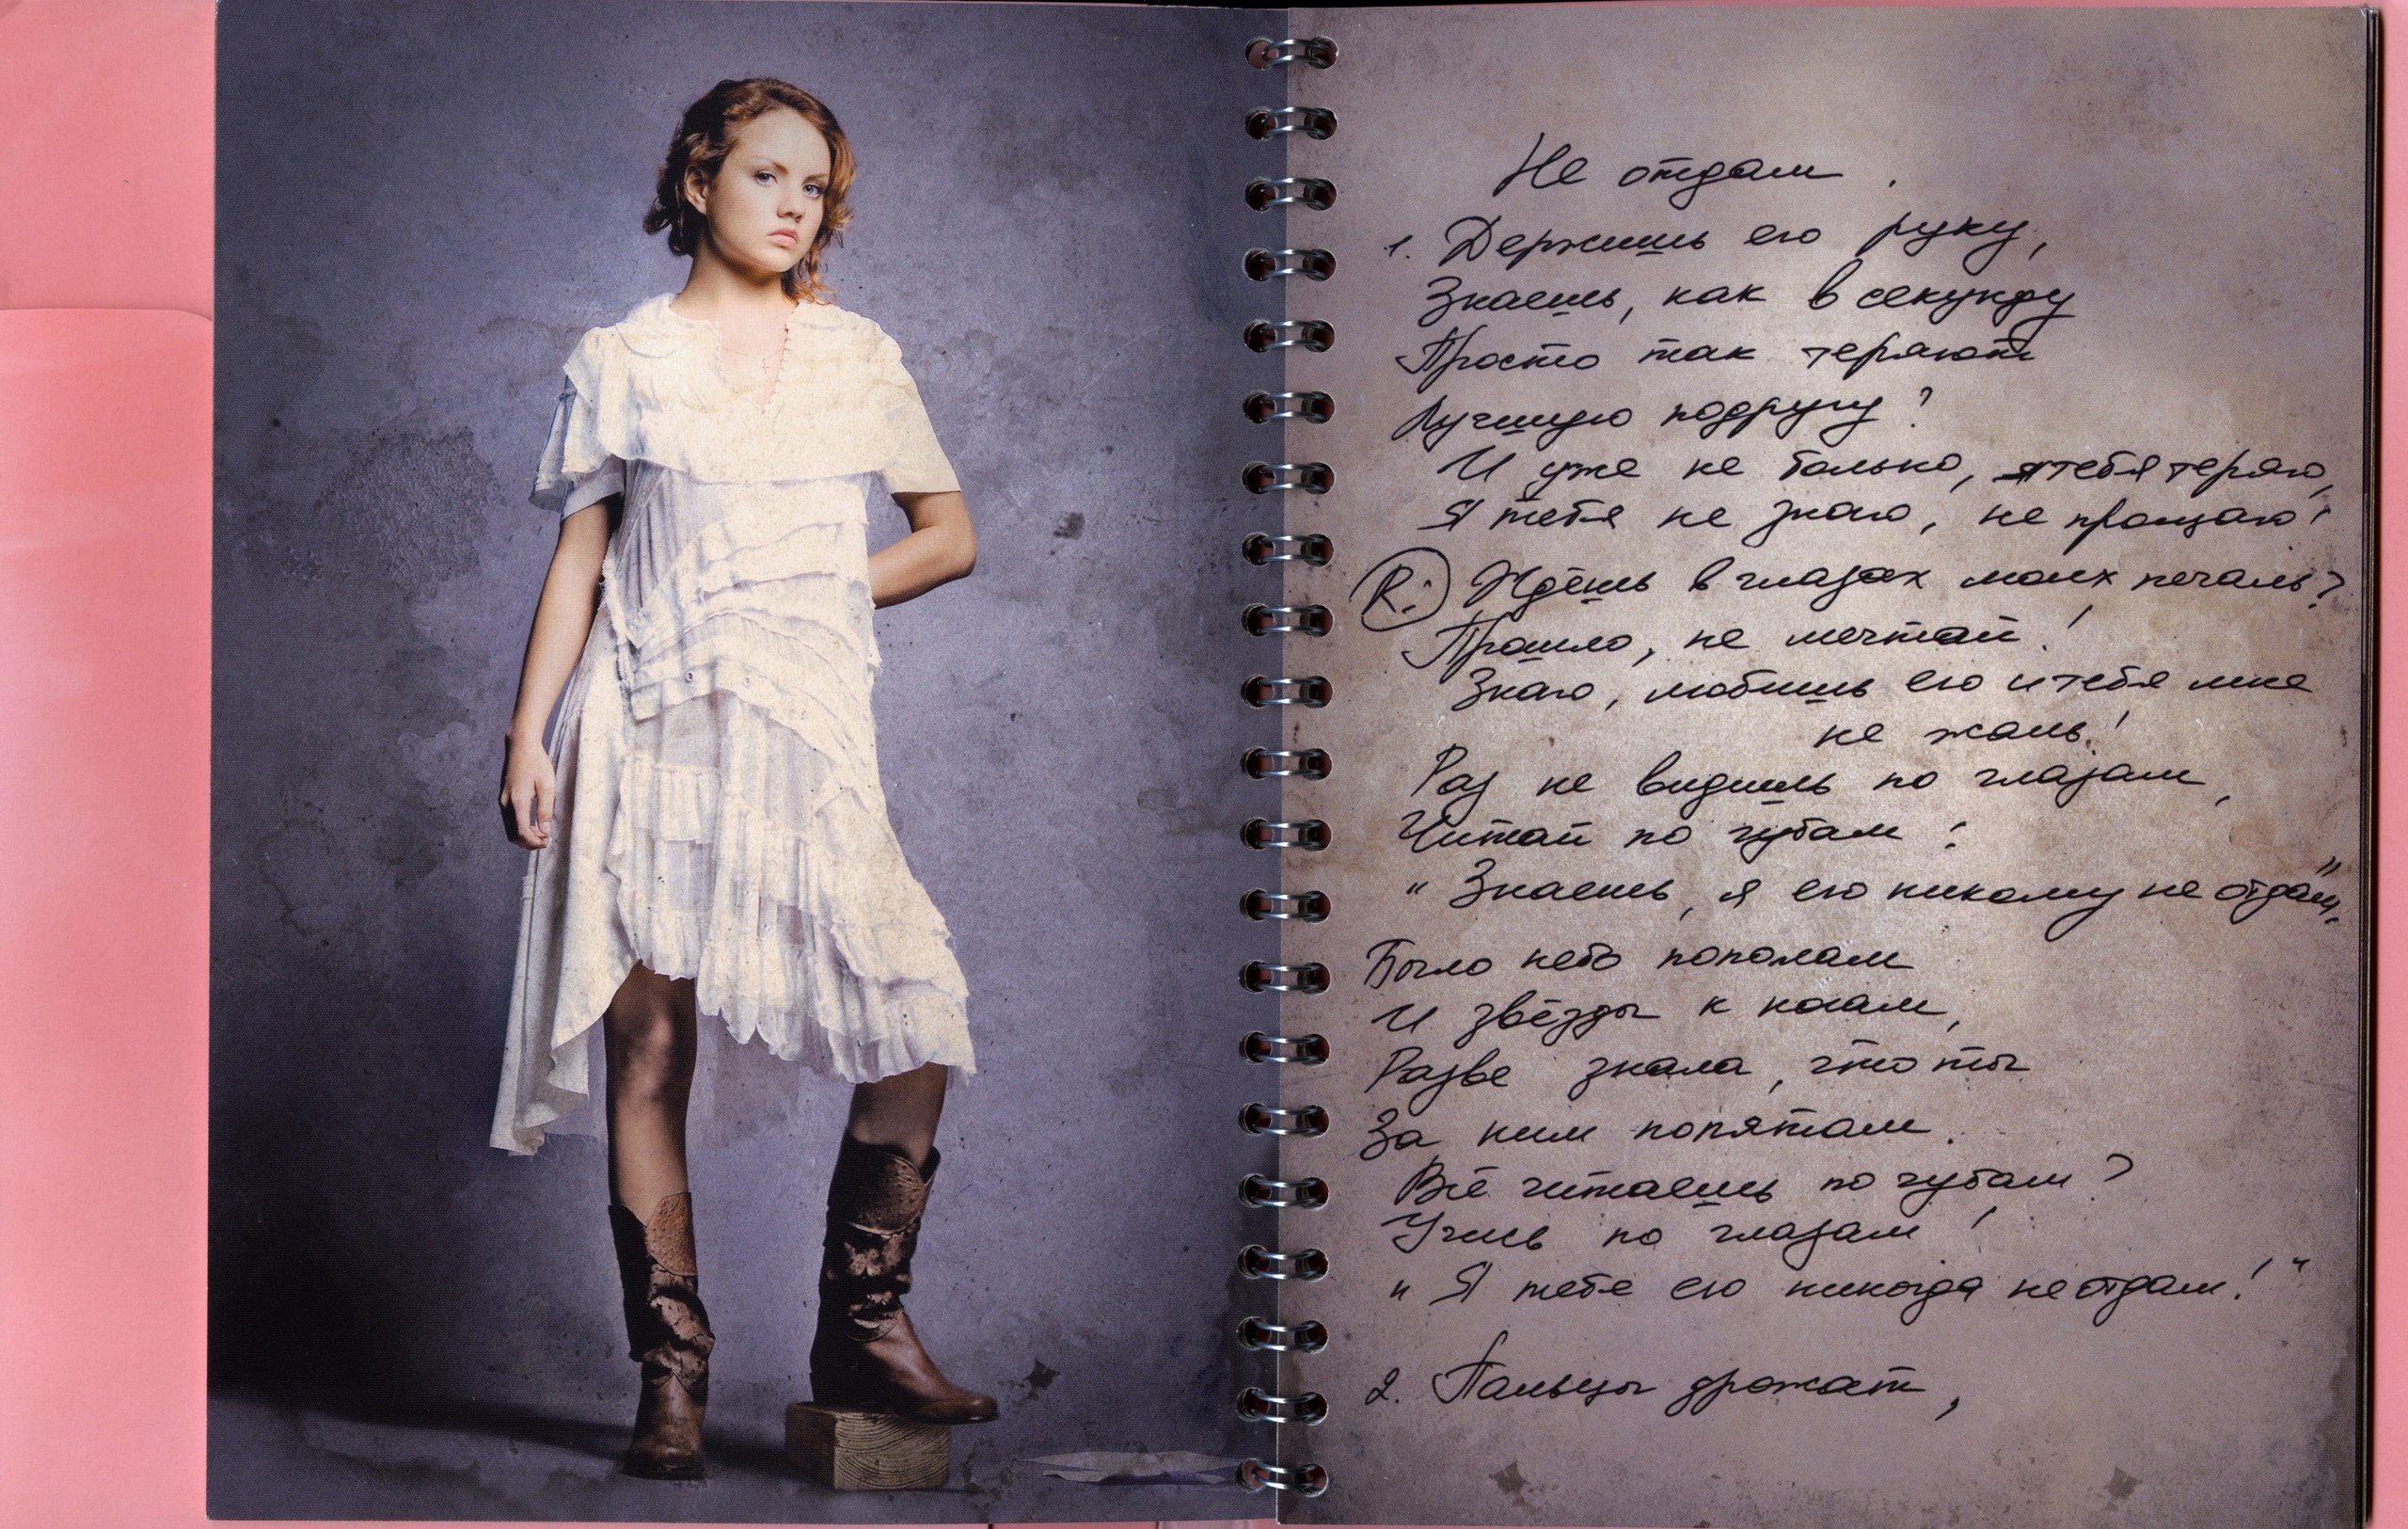 Не отдам.
1. Держишь его руку,
Знаешь, как в секунду
Просто так теряют
Лучшую подругу?
И уже не больно, я тебя теряю,
Я тебя не знаю, не прощаю!
R: Ждёшь в глазах моих печаль?
Прошло, не мечтай!
Знаю, любишь его и тебя мне
не жаль!
Раз не видишь по глазам,
Читай по губам:
"Знаешь, я его никому не отдам".
Было небо пополам
И звёзды к ногам,
Разве знала, что ты
За ним по пятам.
Всё читаешь по губам?
Учись по глазам!
"Я тебе его никогда не отдам!"
2. Пальцы дрожат,